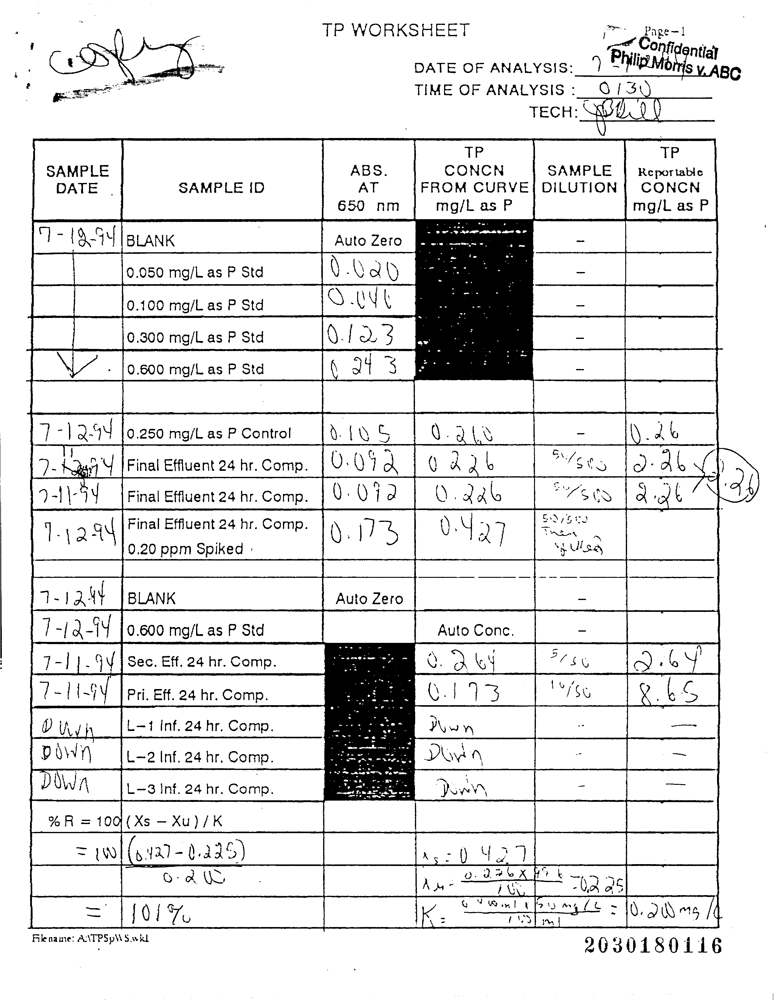 TP WORKSHEET
Page-1
Confidential
Philip Morris v. ABC
copy
DATE OF ANALYSIS: 7
TIME OF ANALYSIS : 0130
TECH:
SAMPLE DATE SAMPLE ID ABS. AT 650 nm TP CONCN FROM CURVE mg/L as P SAMPLE DILUTION TP Reportable CONCN mg/L as P
7-12-94 BLANK Auto Zero –
0.050 mg/L as P Std 0.020 –
0.100 mg/L as P Std 0.040 –
0.300 mg/L as P Std 0.123 –
0.600 mg/L as P Std 0.243 –
7-12-94 0.250 mg/L as P Control 0.105 0.260 – 0.26
Final Effluent 24 hr. Comp. 0.092 0.226 50/500 2.26
2.26
7-11-94 Final Effluent 24 hr. Comp. 0.092 0.226 50/500 2.26
7-12-94 Final Effluent 24 hr. Comp. 0.173 0.427 50/500
0.20 ppm Spiked Then spiked
7-12-94 BLANK Auto Zero –
7-12-94 0.600 mg/L as P Std Auto Conc. –
7-11-94 Sec. Eff. 24 hr. Comp. 0.264 5/50 2.64
7-11-94 Pri. Eff. 24 hr. Comp. 0.173 10/50 8.65
DOWN L-1 Inf. 24 hr. Comp. Down –
DOWN L-2 Inf. 24 hr. Comp. Down –
DOWN L-3 Inf. 24 hr. Comp. Down –
% R = 100 (Xs – Xu) / K
= 100 (0.427-0.225) Xs = 0.427
0.200 Xu = 0.226 X 99.6 = 0.225
100
= 101% K = 0.400 ml x 50 mg/L = 0.200 mg/L
100 ml
Filename: A:\TPSpWS.wk1
2030180116